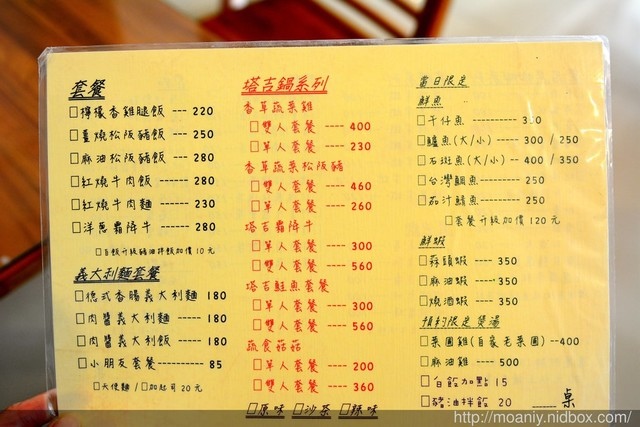 套餐
□檸檬香雞腿飯 --- 220
□薑燒松阪豬飯 --- 250
□麻油松阪豬飯 --- 280
□紅燒牛肉飯 ------ 280
□紅燒牛肉麵 ------ 230
□洋蔥霜降牛 ------ 280
□白飯升級豬油拌飯加價 10 元
義大利麵套餐
□德式香腸義大利麵 180
□肉醬義大利麵 ----- 180
□肉醬義大利飯 ----- 180
□小朋友套餐--------- 85
□天使麵 / □加起司 20 元
塔吉鍋系列
香草蔬菜雞
□雙人套餐 ---- 400
□單人套餐 ---- 230
香草蔬菜松阪豬
□雙人套餐 ---- 460
□單人套餐 ---- 260
塔吉霜降牛
□單人套餐 ---- 300
□雙人套餐 ---- 560
塔吉鮭魚套餐
□單人套餐 ---- 300
□雙人套餐 ---- 560
蔬食菇菇
□單人套餐 ---- 200
□雙人套餐 ---- 360
□原味 □沙茶 □辣味
當日限定
鮮魚
□午仔魚 ----------
□鱸魚(大/小)----- 300 / 250
□石斑魚(大/小)-- 400 / 350
□台灣鯛魚--------- 250
□茄汁鯖魚--------- 250
□套餐升級加價 120 元
鮮蝦
□蒜頭蝦 ---- 350
□麻油蝦 ---- 350
□燒酒蝦 ---- 350
預約限定煲湯
□菜圃雞(自家老菜圃)--400
□麻油雞 ---- 500
□白飯加點 15
□豬油拌飯 20 ____桌
http://moaniy.nidbox.com/